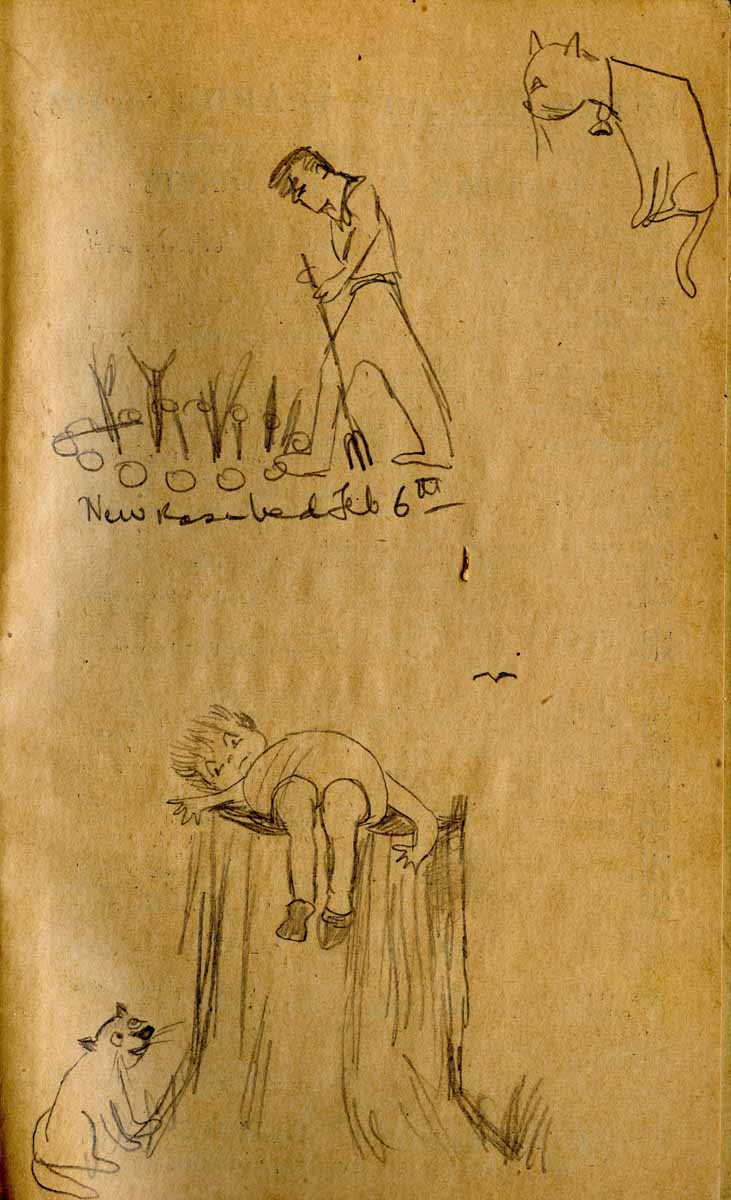 New Rose bed Feb 6th